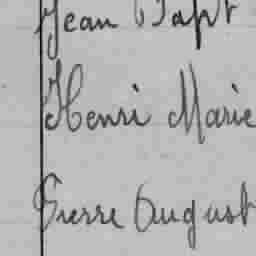 Jean Bapt
Henri Marie
Pierre August